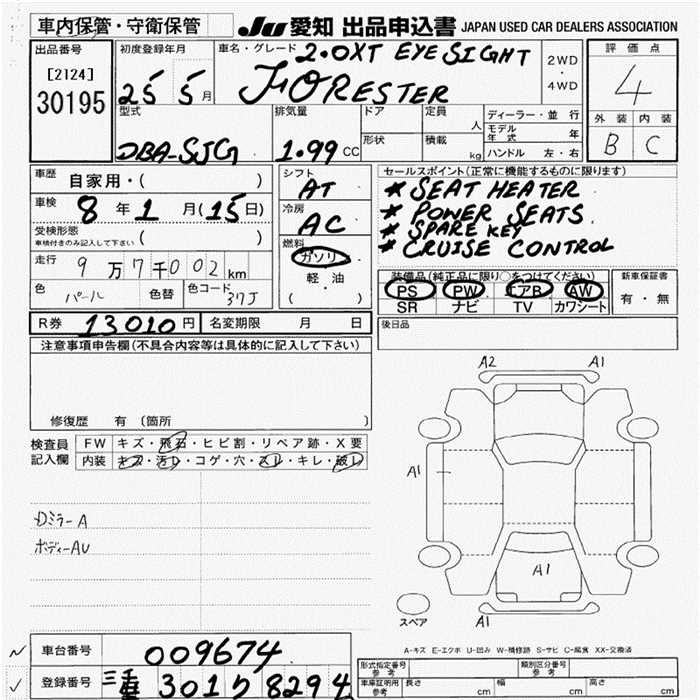 車内保管・守衛保管 JU 愛知 出品申込書 JAPAN USED CAR DEALERS ASSOCIATION
出品番号
[2124]
30195
初度登録年月
25 5月
車名・グレード
2.0XT EYE SIGHT
FORESTER
2WD
・
4WD
評価点
4
外装 内装
B C
型式
DBA-SJG
排気量
1.99 CC
ドア
形状
定員
人
積載
kg
ディーラー・並行
モデル年式 年
ハンドル 左・右
車歴
自家用・( )
車検
8年1月(15日)
受検形態
車検付きのみ記入して下さい ( )
走行
9万7千002km
色
パール
色替
色コード
37J
シフト
AT
冷房
AC
燃料
ガソリン
軽・油
( )
セールスポイント(正常に機能するものに限ります)
* SEAT HEATER
* POWER SEATS
* SPARE KEY
* CRUISE CONTROL
装備品(純正品に限り○をつけてください)
PS PW エアB AW
SR ナビ TV カワシート
新車保証書
有・無
R券 13010円 名変期限 月 日
後日品
注意事項申告欄(不具合内容等は具体的に記入して下さい)
修復歴 有 〔箇所 〕
検査員
記入欄
FW キズ・飛石・ヒビ割・リペア跡・X要
内装 キズ・汚レ・コゲ・穴・スレ・キレ・破レ
Dミラー A
ボディー AU
A2 A1
A1
A1
A1
スペア
A-キズ E-エクボ U-凹み W-補修跡 S-サビ C-腐食 XX-交換済
車台番号 009674
登録番号 三重 301 ち 8294
形式指定番号
参考
類別区分番号
参考
車庫証明用
参考
長さ cm 幅 cm 高さ cm